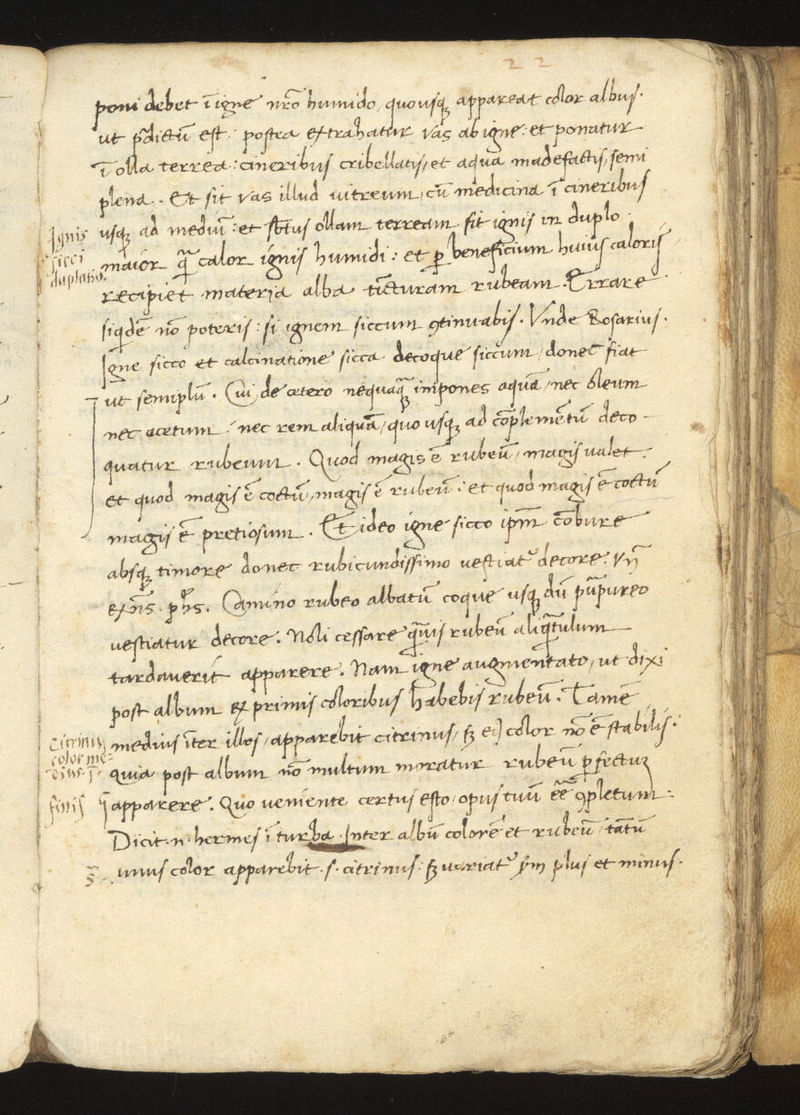 22
poni debet ī igne nr̄o humido, quousq; appareat color albus.
ut p̄dictū est: postea extrahatur vas ab igne: et ponatur
ī olla terrea: cineribus cribellatis, et aqua madefactis, semi
plena. Et sit vas illud vitreum, cū medicina ī cineribus
Ignis usq; ad mediū: et sbtus ollam terream fit ignis in duplo
sicci maior q̄ calor ignis humidi: et p beneficium huius caloris
duplatio recipiet materia alba tīcturam rubeam. Errare
siqdē nō poteris: si ignem siccum 9tinuabis. Vnde Rosarius.
Igne sicco et calcinatione sicca decoque siccum, donec fiat
ut semiplū. Cui de cetero nequaq̄ impones aquā, nec oleum
nec acetum: nec rem aliquā, quousq; ad cōplemētū deco-
quatur rubeum. Quod magis ē rubeū, magis valet:
et quod magis ē coctū, magis ē rubeū: et quod magis ē coctū
magis ē pretiosum. Et ideo igne sicco ip̄m cōbure
absq; timore donec rubicundissimo vestiat decore. Vn̄
phs. Camino rubeo albatū coque usq; dū purpureo
vestiatur decore. Noli cessare q̄uis rubeū aliq̄tulum
tardaverit apparere. Nam igne augmentato, ut dixi
post album ex primis coloribus habebis rubeū. Tamē
Citrinus medius īter illos, apparebit citrinus, sȝ color nō ē stabilis:
color me- quia post album nō multum moratur rubeū perfectuȝ
dius
finis apparere. Quo veniente certus esto, opus tuū ēē 9pletum:
Dicit .n. hermes ī turba. Inter albū colorē et rubeū, tātū
unus color apparebit .s. citrinus: sȝ variat plus et minus.